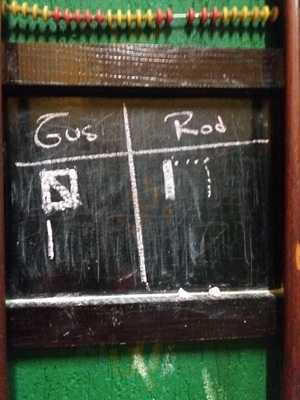 Gus Rod